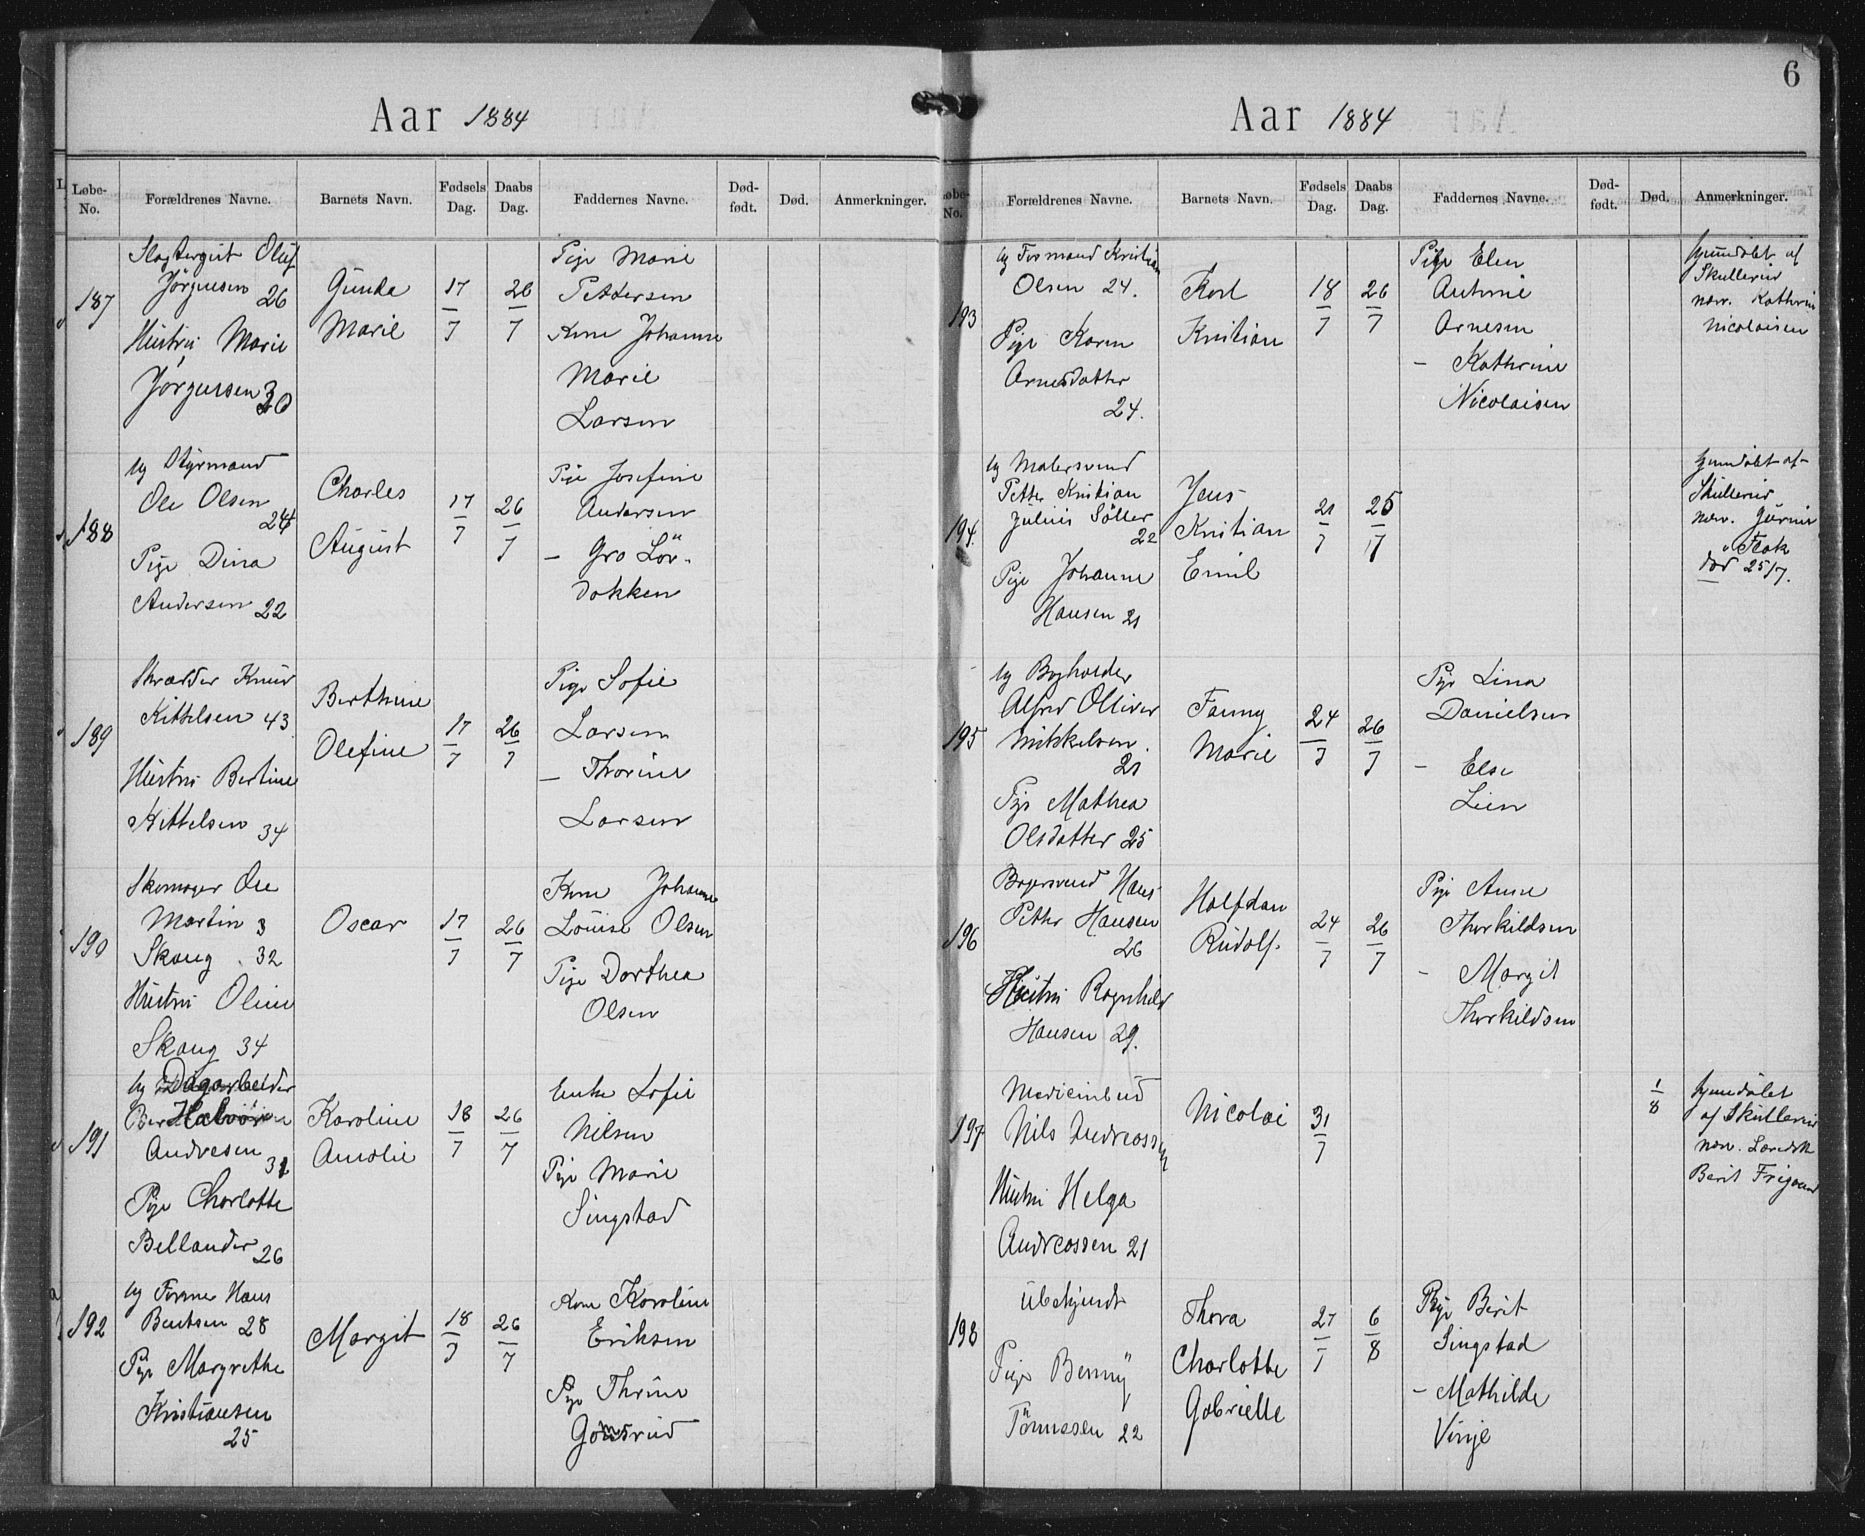 6
Aar 1884
Løbe-No.
Forældrenes Navne.
Barnets Navn.
Fødsels Dag.
Daabs Dag.
Faddernes Navne.
Død-født.
Død.
Anmerkninger.
187
Olüf
Jørgensen 26
Hüstrü Marie
Jørgensen 30
Günda
Marie
17/7
26/7
Pige Marie
Pettersen
Kone Johanne
Marie
Larsen
188
Ug Styrmand
Ole Olsen
24
Pige Dina
Andersen 22
Charles
August
17/7
26/7
Pige Josefine
Andersen
— Gro Lör-
dokken
189
Skrædder Knud
Kittelsen 43
Hüstrü Bertine
Kittelsen 34
Berthine
Olefine
17/7
26/7
Pige Sofie
Larsen
— Thorine
Larsen
190
Skomager Ole
Martin
Skaug 32
Hüstrü Oline
Skaug 34
Oscar
17/7
26/7
Kone Johanne
Louise Olsen
Pige Dorthea
Olsen
191
Ug
Andresen
Pige Charlotte
Bellander 26
Karoline
Amalie
18/7
26/7
Enke Sofie
Nilsen
Pige Marie
Singstad
192
Ug Former Hans
Bentsen 28
Pige Margrethe
Kristiansen
25
Margit
18/7
26/7
Kone Karoline
Eriksen
Pige Thrine
Aar 1884
Løbe-No.
Forældrenes Navne.
Barnets Navn.
Fødsels Dag.
Daabs Dag.
Faddernes Navne.
Død-født.
Død.
Anmerkninger.
193
Ug Formand Kristian
Olsen 24.
Pige Karen
Arnesdatter
24.
Karl
Kristian
18/7
26/7
Pige Elen
Antonie
Arnesen
— Kathrine
Nicolaisen
hjemdøbt af
Skullerud
nærv. Kathrine
Nicolaisen
194.
Ug Malersvend
Petter Kristian
Julius Søller
22
Pige Johanne
Hansen 21
Jens
Kristian
Emil
21/7
25/7
hjemdøbt af
Skullerud
nærv.
død 25/7.
195
Ug Bogholder
Alfred Olliver
Mikkelsen.
21
Pige Mathea
Olsdatter 25
Fanny
Marie
24/7
26/7
Pige Lina
Danielsen
— Else
Lien
196
Bagersvend Hans
Petter Hansen
26
Hüstrü Ragnhild
Hansen 29.
Halfdan
Rüdolf.
24/7
26/7
Pige Anne
Thorkildsen
— Margit
Thorkildsen
197
Medicinbud
Nils Andreassen
Hüstrü Helga
Andreassen 21
Nicolai
31/7
1/8
hjemdøbt
af Skullerud
nærv.
Berit
198
Übekjendt
Pige Benny
Tönnessen 22
Thora
Charlotte
Gabrielle
27/7
6/8
Pige Berit
Singstad
— Mathilde
Vinje